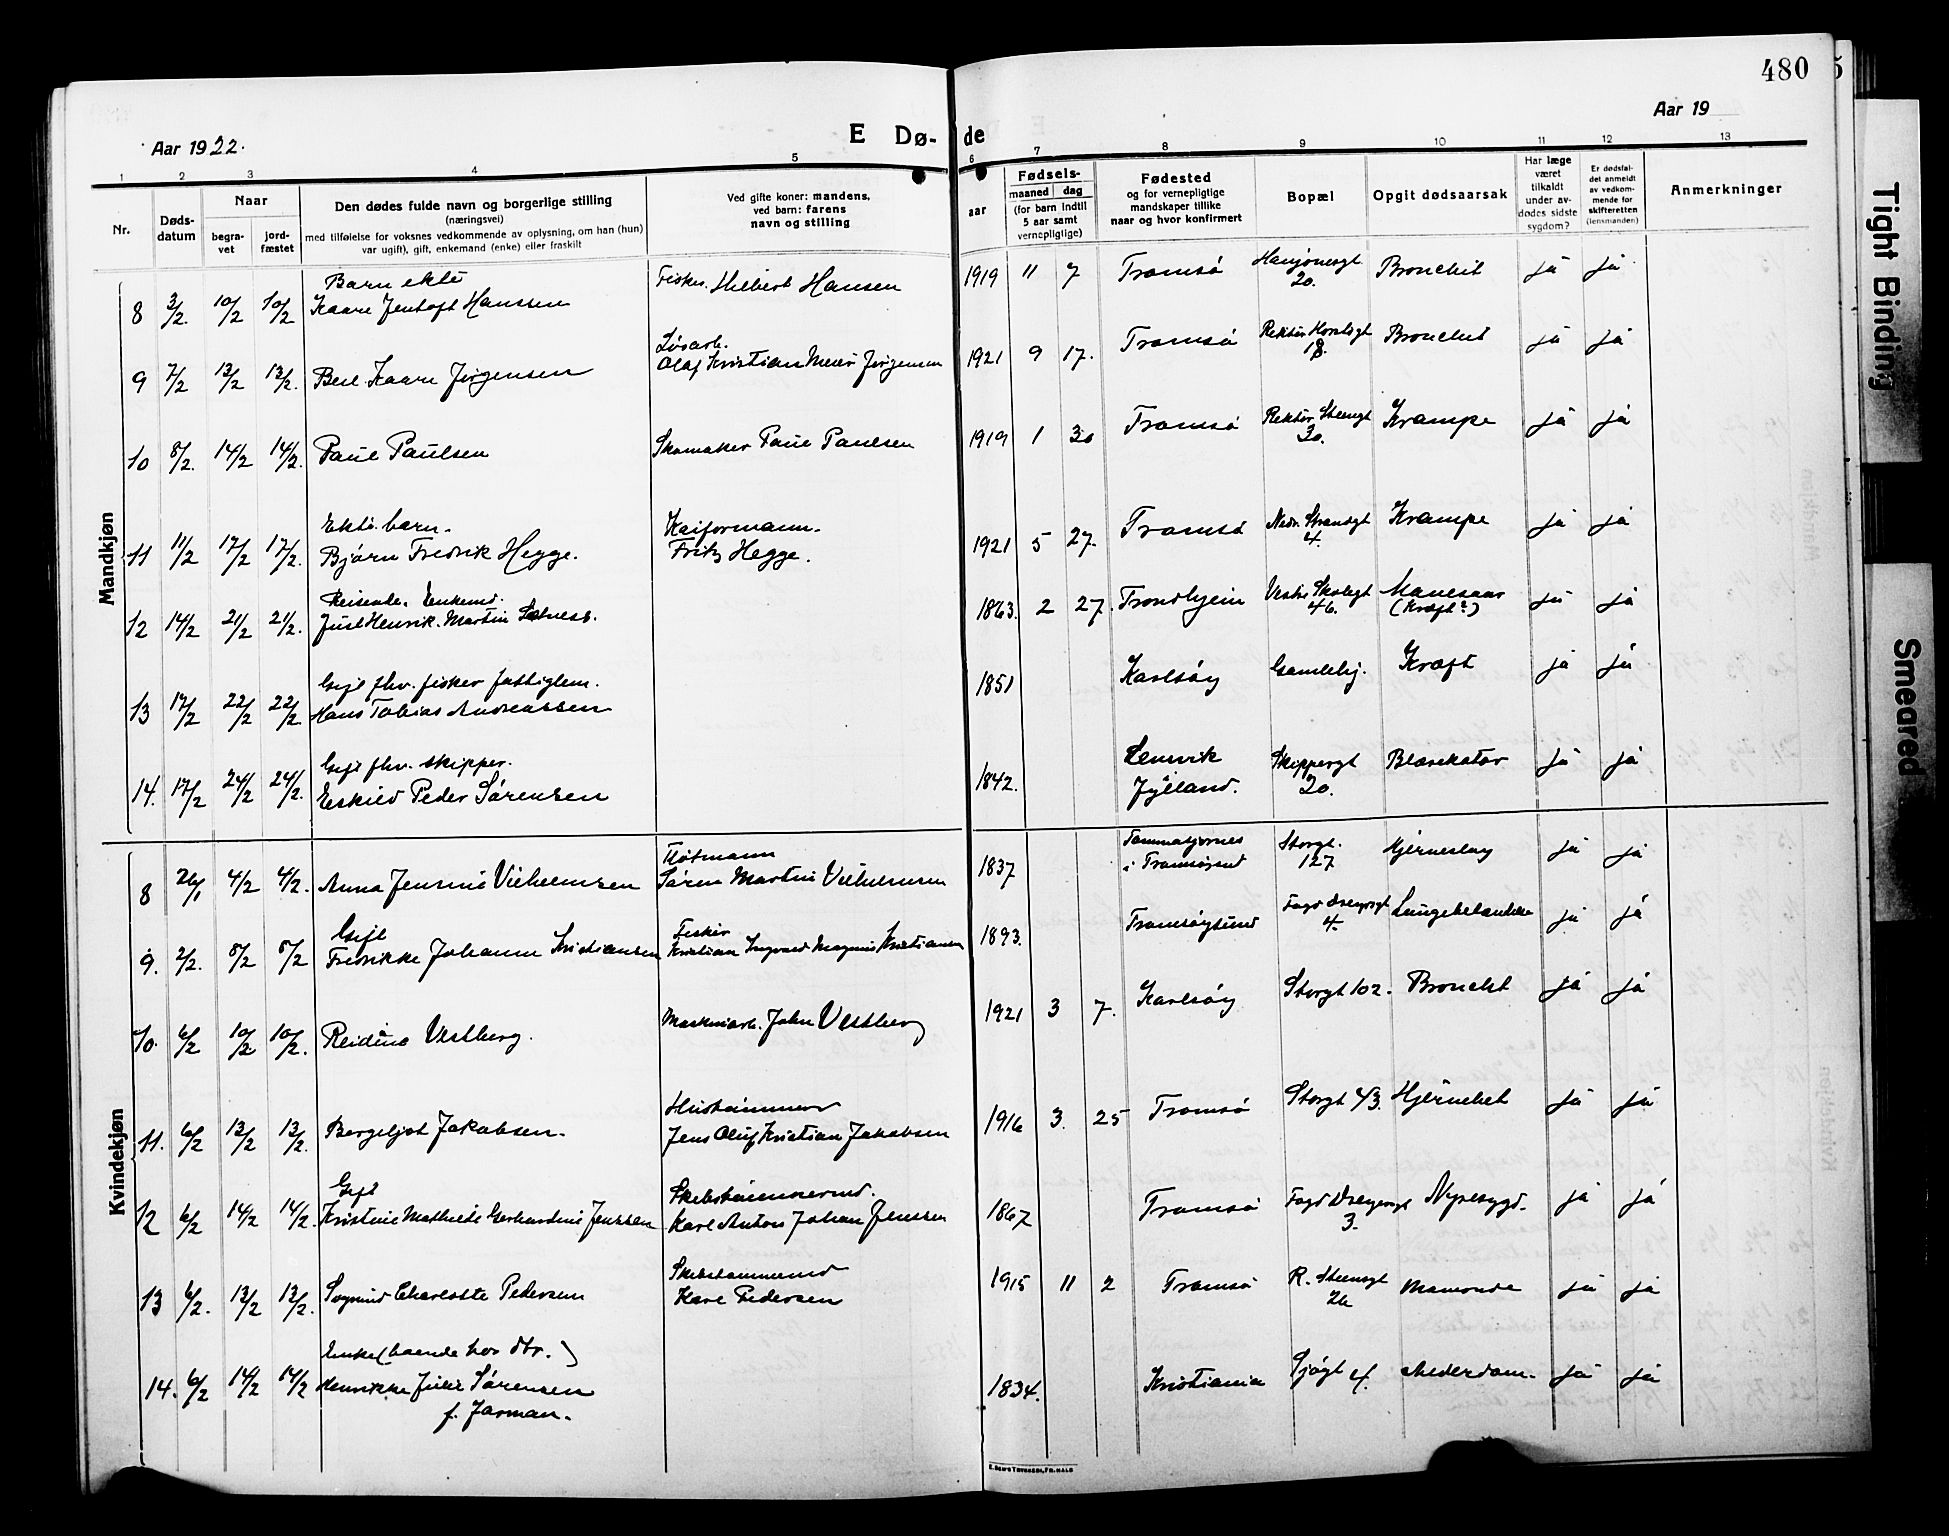 480
5
Aar 1922.
E Dø-
de
Aar 19
1 2 3 4 5 6 7 8 9 10 11 12 13
Nr.
Døds-
datum
Naar
begra-
vet
jord-
fæstet
Den dødes fulde navn og borgerlige stilling
(næringsvei)
med tilføielse for voksnes vedkommende av oplysning, om han (hun)
var ugift), gift, enkemand (enke) eller fraskilt
Ved gifte koner: mandens,
ved barn: farens
navn og stilling
aar
Fødsels-
maaned dag
(for barn indtil
5 aar samt
vernepligtige)
Fødested
og for vernepligtige
mandskaper tillike
naar og hvor konfirmert
Bopæl
Opgit dødsaarsak
Har læge
været
tilkaldt
under av-
dødes sidste
sygdom?
Er dødsfal-
det anmeldt
av vedkom-
mende for
skifteretten
(lensmanden)
Anmerkninger
Mandkjøn
Barn ekte
8 3/2. 10/2 10/2 Kaare Jentoft Hanssen Fisker. Hilbert Hansen 1919 11 7 Tromsø 20. Bronchit ja ja
Løsarb.
9 7/2 13/2 13/2. Kaare Jørgensen Olaf Kristian Meier Jørgensen 1921 9 17. Tromsø 18. Bronchit ja ja
10 8/2. 14/2 14/2. Paul Paulsen Skomaker Paul Paulsen 1919 1 30 Tromsø Rektor Steensgt 30. Krampe ja ja
Ekte barn. Kaiformann.
11 11/2 17/2 17/2. Bjørn Fredrik Hegge. Fritz Hegge. 1921 5 27. Tromsø Nedr. Strandgt 4. Krampe ja ja
Reisende. Enkemd.
12 14/2 21/2 21/2. Juul Henrik Martin 1863. 2 27. Trondhjem Vestre Skolegt 46. Mavesaar (Kræft?) ja ja
Gift fhv. fisker fattiglem.
13 17/2 22/2 22/2. Hans Tobias Andreassen 1851 Karlsøy Gamlehj. Kræft ja ja
Gift fhv. skipper.
14. 17/2 24/2 24/2. Eskild Peder Sørensen 1842. Lemvik Jylland. Skippergt 20. Blærekatar ja ja
Kvindekjøn
Fløtmann
8 26/1 4/2 4/2. Anna Jensine Vilhelmsen Søren Martin Vilhelmsen 1837 i Tromsøsund Storgt. 127 Hjerneslag ja ja
Gift Fisker
9. 2/2. 8/2 8/2 Fredrikke Johanne Kristiansen Kristian Ingvard Magnus Kristiansen 1893. Tromsøysund Fogd Dreyersgt 4. Lungebetændelse ja ja
10. 6/2 10/2 10/2. Reidun Vestberg. Maskinarb. John Vestberg 1921 3 7. Karlsøy Storgt 102. Bronchit ja ja
Hustømmer
11. 6/2 13/2 13/2. Bergljot Jakobsen. Jens Oluf Kristian Jakobsen 1916 3. 25 Tromsø Storgt 43. Hjernebet ja ja
Gift Skibstømmermd.
12 6/2 14/2 14/2. Kristine Mathilde Gerhardine Jenssen Karl Anton Johan Jenssen 1867 Tromsø Fogd Dreyersgt 3. Nyresygd. ja ja
Skibstømmermd
13 6/2. 13/2 13/2. Sognid Charlotte Pedersen Karl Pedersen 1915 11 2 Tromsø R. Steensgt 26 ja ja
Enke (boende hos dtr.)
14. 6/2 14/2 14/2 Henrikke Julie Sørensen 1834. Kristiania Sjøgt 4. Alderdom. ja ja
f. Jarman.
Tight Binding
Smeared